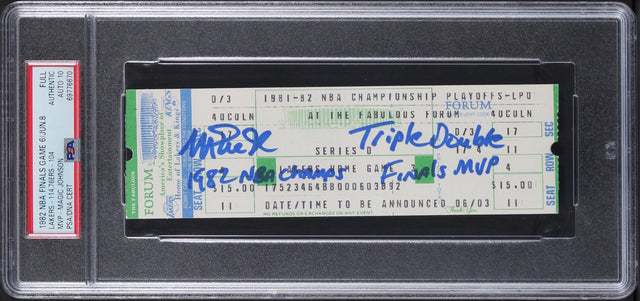 1982 NBA FINALS GAME 6/JUN.8
LAKERS -114,76ERS -104
MVP - MAGIC JOHNSON
PSA/DNA CERT
FULL
AUTHENTIC
AUTO 10
69776670
PSA
THE FABULOUS
FORUM
America's Showplace of
Entertainment
Home of Lakers & Kings
KINGS
D/3 1981-82 NBA CHAMPIONSHIP PLAYOFFS-LPD
40COLN AT THE FABULOUS FORUM
FORUM
EVENT CODE
D/3
40COLN
17 SERIES D 17
Triple Double
1982 NBA Champs Finals MVP
LAKERS HOME GAME 3
4
$15.00 17523464B8000603892 $15.00
11 DATE/TIME TO BE ANNOUNCED 06/03 11
NO REFUNDS OR EXCHANGES ON ANY EVENT
Thank You
SEAT
SEAT ROW SEC